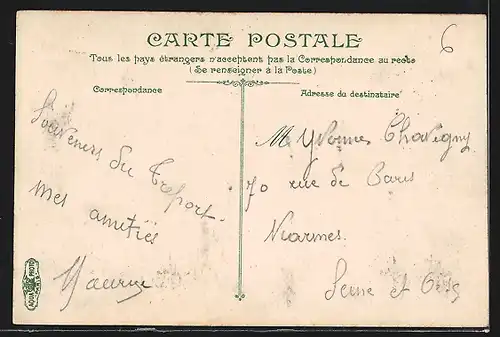 CARTE POSTALE
Tous les pays étrangers n'acceptent pas la Correspondance au recto
(Se renseigner à la Poste)
Correspondance
Souvenirs du Treport.
mes amitiés
Maurice
Adresse du destinataire
M Yvonne Chavigny
70 rue de Paris
Viarmes.
Seine et Oise
6
AQUA PHOTO
PARIS